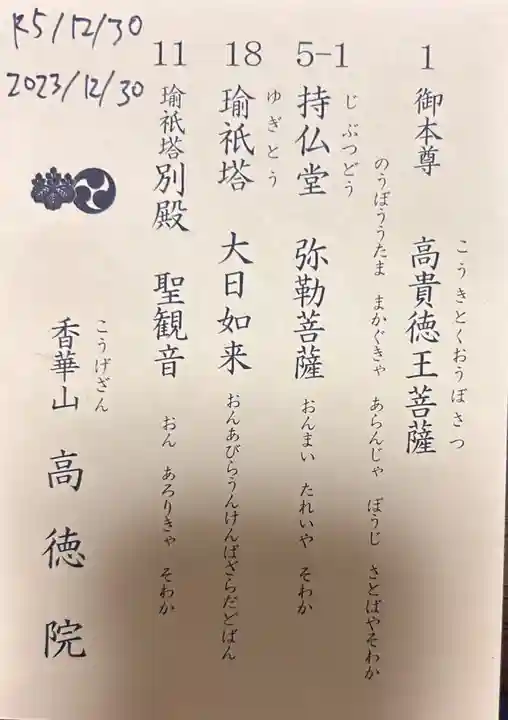 R5/12/30
2023/12/30
1 御本尊 高貴徳王菩薩
こうきとくおうぼさつ
のうぼううたま まかぐきゃ あらんじゃ ぼうじ さとばやそわか
5-1 持仏堂 弥勒菩薩 おんまい たれいや そわか
じぶつどう
18 瑜祇塔 大日如来 おんあびらうんけんばざらだどばん
ゆぎとう
11 瑜祇塔別殿 聖観音 おん あろりきゃ そわか
香華山 高徳院
こうげざん